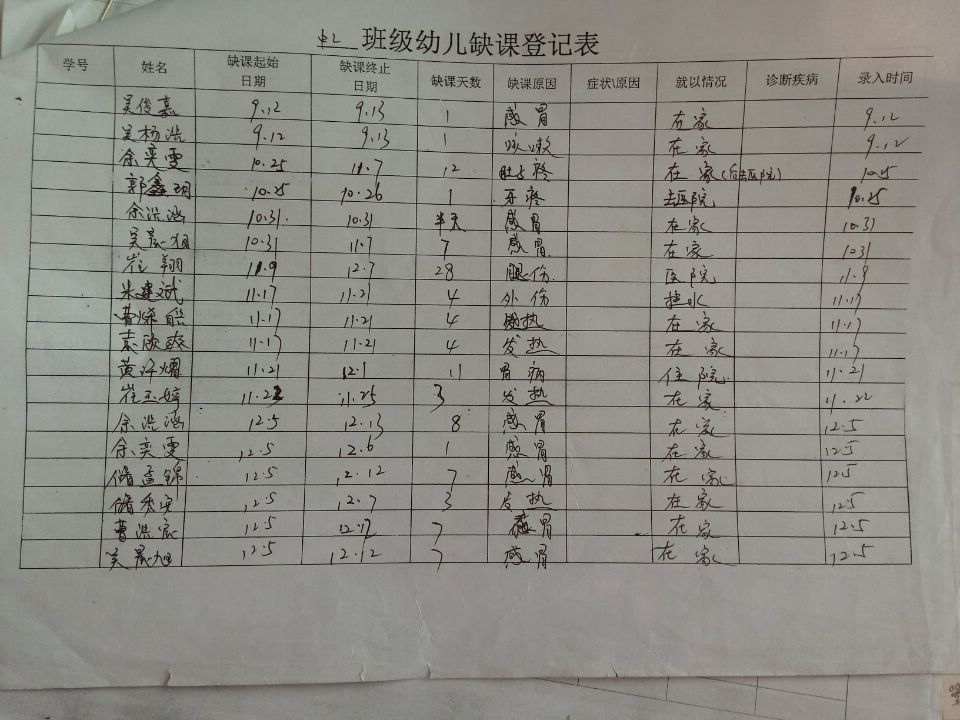 中2 班级幼儿缺课登记表
学号 姓名 缺课起始日期 缺课终止日期 缺课天数 缺课原因 症状\原因 就以情况 诊断疾病 录入时间
吴俊嘉 9.12 9.13 1 感冒 在家 9.12
吴杨浩 9.12 9.13 1 咳嗽 在家 9.12
余奕雯 10.25 11.7 12 肚子疼 在家(后去医院) 10.25
郭鑫玥 10.25 10.26 1 牙疼 去医院 10.25
余浩涵 10.31. 10.31 半天 感冒 在家 10.31
吴晨旭 10.31 11.7 7 感冒 在家 1031
崔翔 11.9 12.7 28 腿伤 医院 11.9
朱建斌 11.17 11.21 4 外伤 挂水 11.17
曹 11.17 11.21 4 发热 在家 11.17
袁欣 11.17 11.21 4 发热 在家 11.17
黄 11.21 12.1 11 胃病 住院 11.21
崔玉婷 11.22 11.25 3 发热 在家 11.22
余浩涵 12.5 12.13 8 感冒 在家 12.5
余奕雯 12.5 12.6 1 感冒 在家 12.5
储孟锦 12.5 12.12 7 感冒 在家 12.5
储 12.5 12.7 3 发热 在家 12.5
曹浩家 12.5 12.12 7 感冒 在家 12.5
吴晨旭 12.5 12.12 7 感冒 在家 12.5